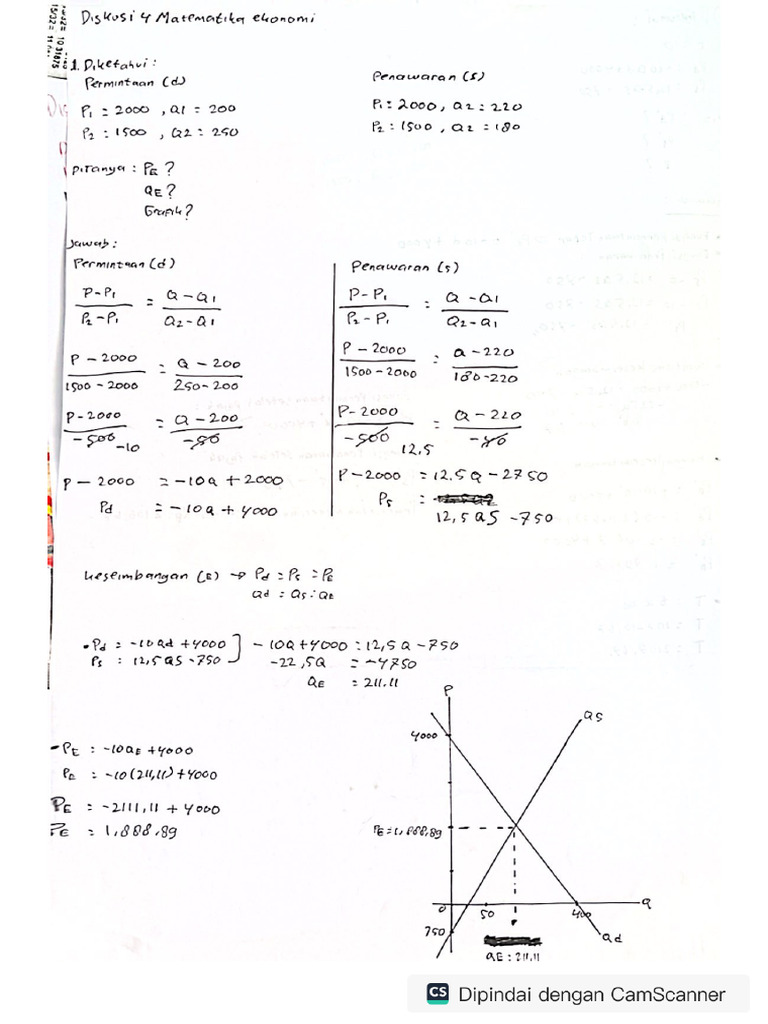 Diskusi 4 Matematika ekonomi
1. Diketahui :
Permintaan (d)
P1 = 2000 , Q1 = 200
P2 : 1500 , Q2 = 250
Penawaran (s)
P1 : 2000, Q2 : 220
P2 : 1500, Q2 : 180
Ditanya : PE ?
QE ?
Grafik ?
Jawab :
Permintaan (d)
P-P1 / P2-P1 = Q-Q1 / Q2-Q1
P-2000 / 1500-2000 = Q-200 / 250-200
P-2000 / -500 -10 = Q-200 / -50
P - 2000 = -10Q + 2000
Pd = -10Q + 4000
Penawaran (s)
P-P1 / P2-P1 : Q-Q1 / Q2-Q1
P-2000 / 1500-2000 : Q-220 / 180-220
P-2000 / -500 12,5 : Q-220 / -40
P-2000 = 12,5Q - 2750
Ps :
12,5 QS -750
keseimbangan (E) → Pd = Ps = PE
Qd = Qs = QE
• Pd = -10Qd +4000 ] -10Q+4000 = 12,5Q -750
Ps : 12,5QS -750 -22,5Q = -4750
QE = 211.11
- PE : -10QE +4000
PE : -10(211,11)+4000
PE : -2111,11 + 4000
PE : 1,888,89
P
4000
QS
PE = 1,888,89
0
50
400
Q
750
Qd
QE : 211.11
CS Dipindai dengan CamScanner